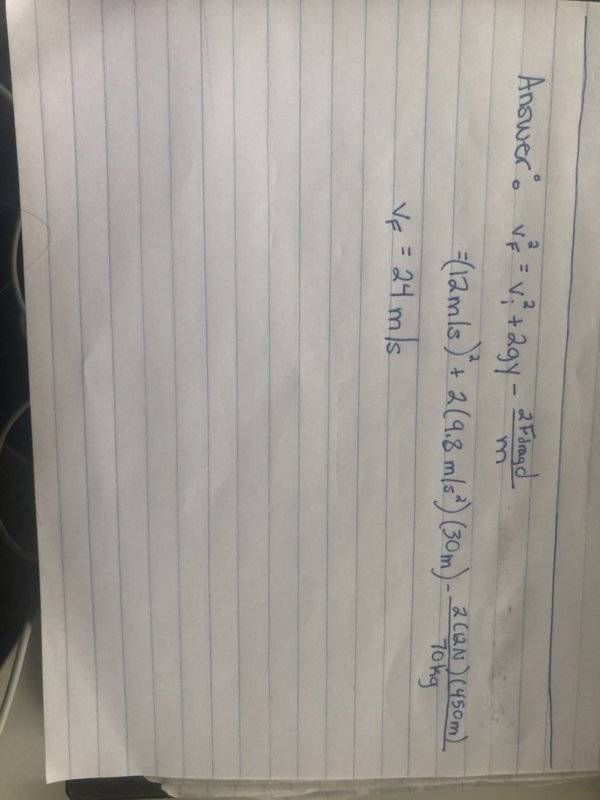 Answer: v_F² = v_i² + 2gy - 2F_drag d / m
= (12 m/s)² + 2(9.8 m/s²)(30m) - 2(12N)(450m) / 70kg
v_F = 24 m/s